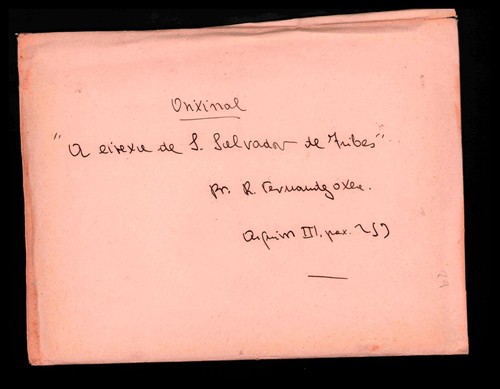 Orixinal
"A eirexa de S. Salvador de Fribes"
por R. Fernandez oxea.
Arquivos III, pax. 259